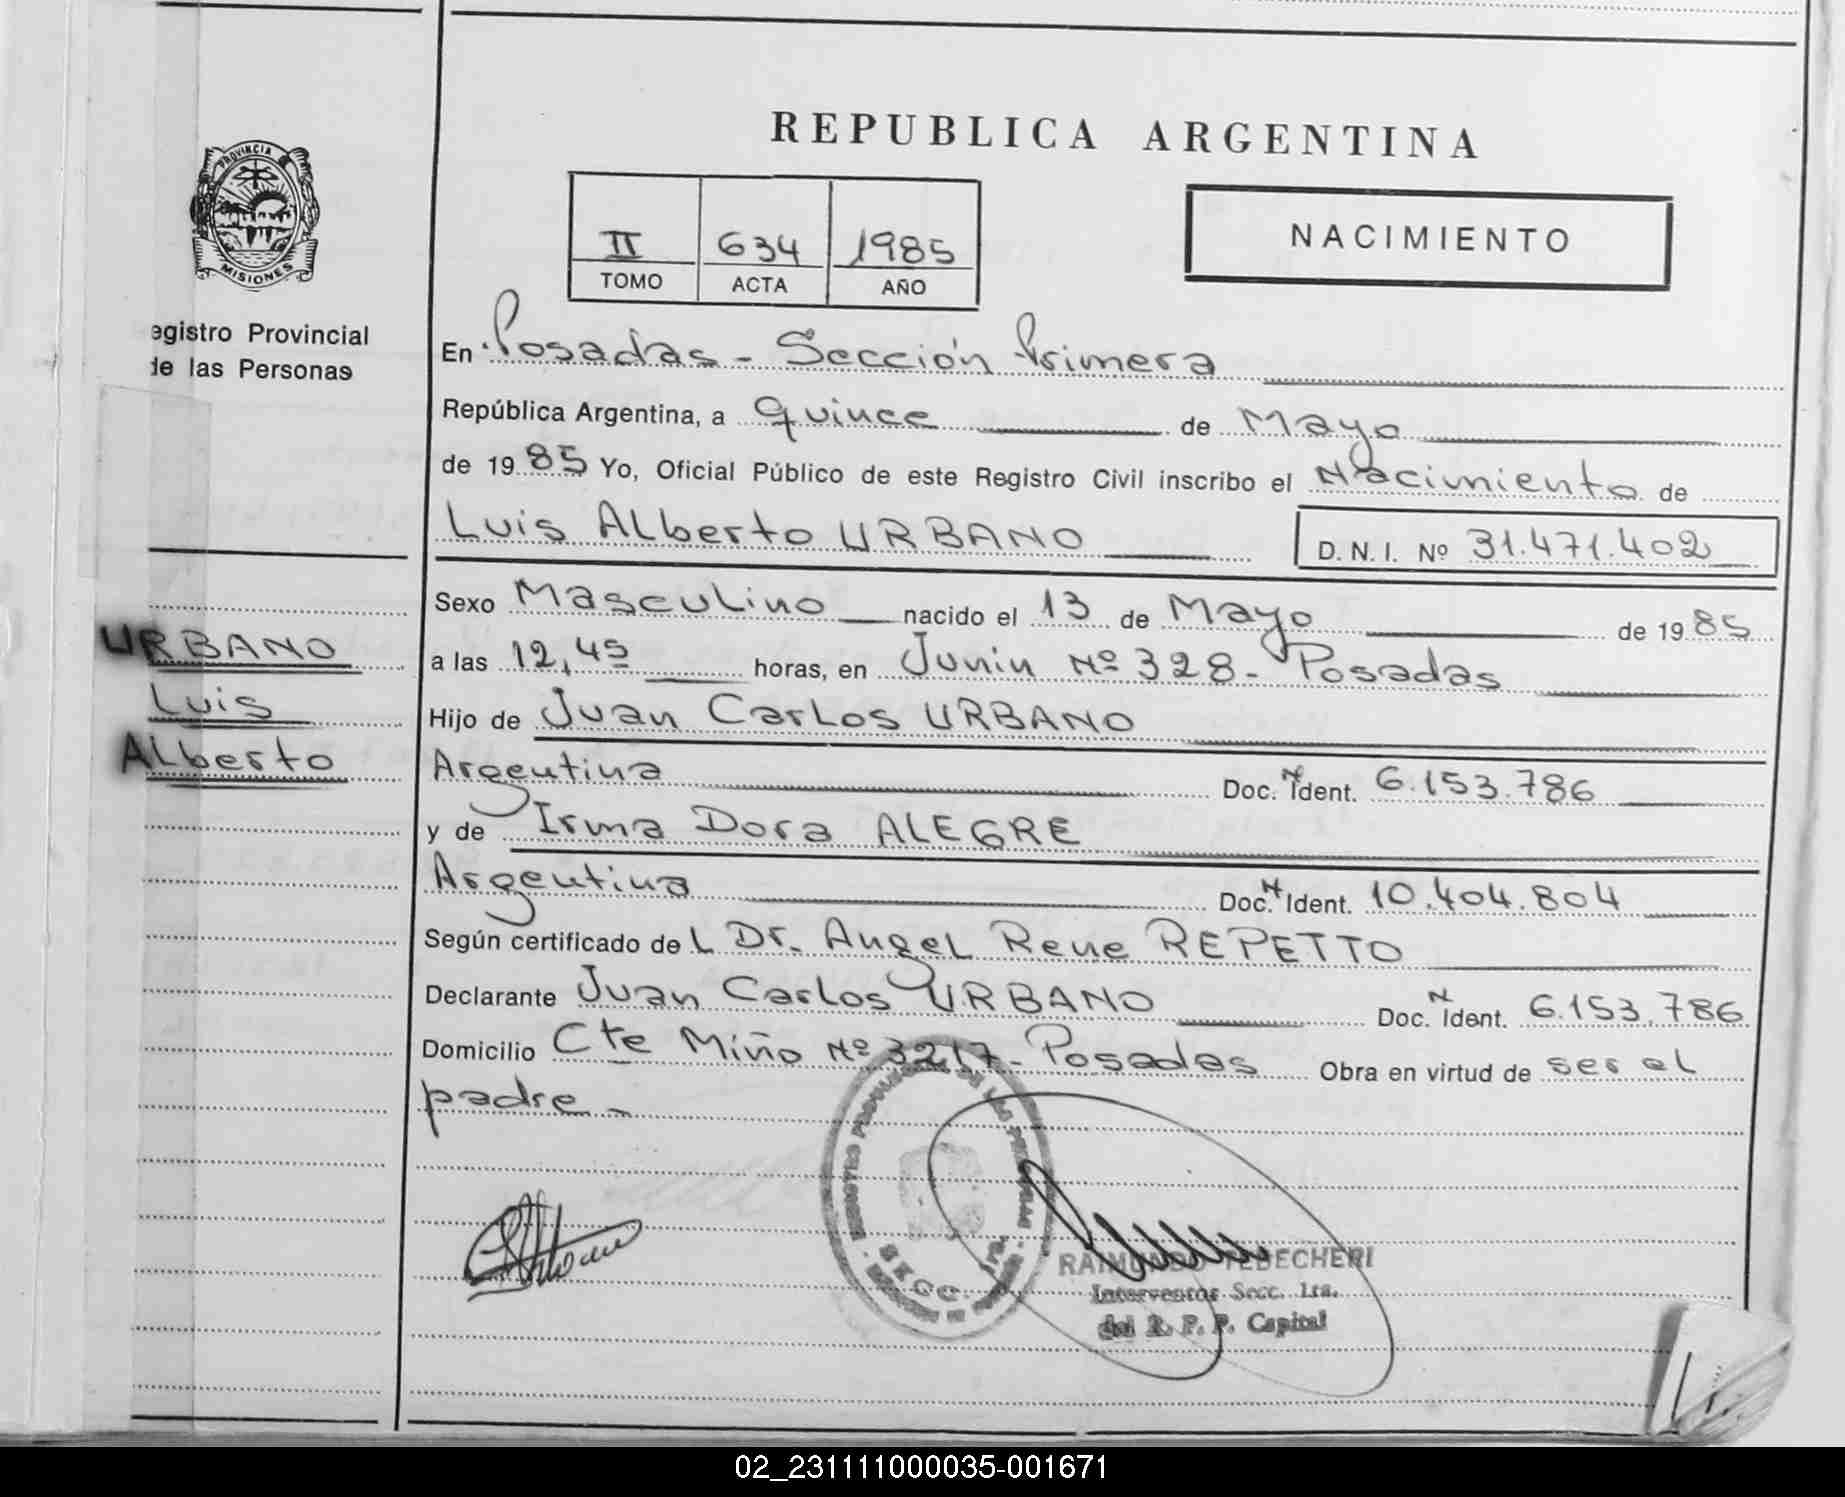 REPUBLICA ARGENTINA
PROVINCIA
MISIONES
II 634 1985
TOMO ACTA AÑO
NACIMIENTO
egistro Provincial
de las Personas
En Posadas - Sección Primera
República Argentina, a quince de Mayo
de 1985 Yo, Oficial Público de este Registro Civil inscribo el Nacimiento de
Luis Alberto URBANO D.N.I. Nº 31.471.402
Sexo Masculino nacido el 13 de Mayo de 1985
URBANO
Luis
Alberto
a las 12,45 horas, en Junin Nº 328 - Posadas
Hijo de Juan Carlos URBANO
Argentina Doc. N Ident. 6.153.786
y de Irma Dora ALEGRE
Argentina Doc. N Ident. 10.404.804
Según certificado del Dr. Angel Rene REPETTO
Declarante Juan Carlos URBANO Doc. N Ident. 6.153.786
Domicilio Cte Miño Nº 3217 - Posadas Obra en virtud de ser el
padre -
RAIMUNDO TEBECHERI
Interventor Secc. 1ra.
del R. P. P. Capital
02_231111000035-001671